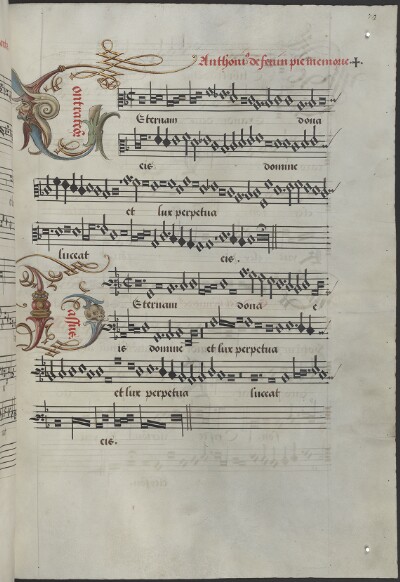 Anthoni⁹ de fevin pie memorie
Contratenor
Eternam dona
eis domine
et lux perpetua
luceat eis.
Bassus
Eternam dona e
is domine et lux perpetua
et lux perpetua luceat
eis.